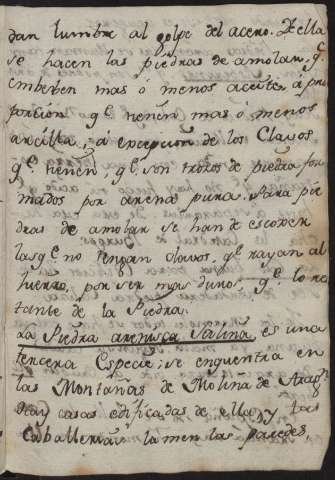 dan lumbre al golpe del acero. De ella
se hacen las piedras de amolar, q.e
embeven mas ó menos aceite á pro
porcion q.e tienen mas ó menos
arcilla, á excepcion de los Clavos
q.e tienen, q.e son trozos de piedra for
mados por arena pura. Para pie
dras de amolar se han de escoxer
las q.e no tengan clavos, q.e rayan al
hierro, por ser mas duros, q.e lo res
tante de la Piedra.
La Piedra arenisca salina es una
tercera Especie: se enquentra en
las Montañas de Molina de Arag.n
Hay casas edificadas de ella, y las
Caballerias lamen las paredes